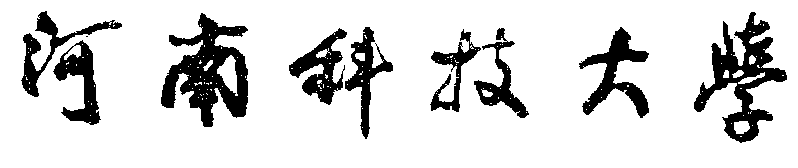 河南科技大學